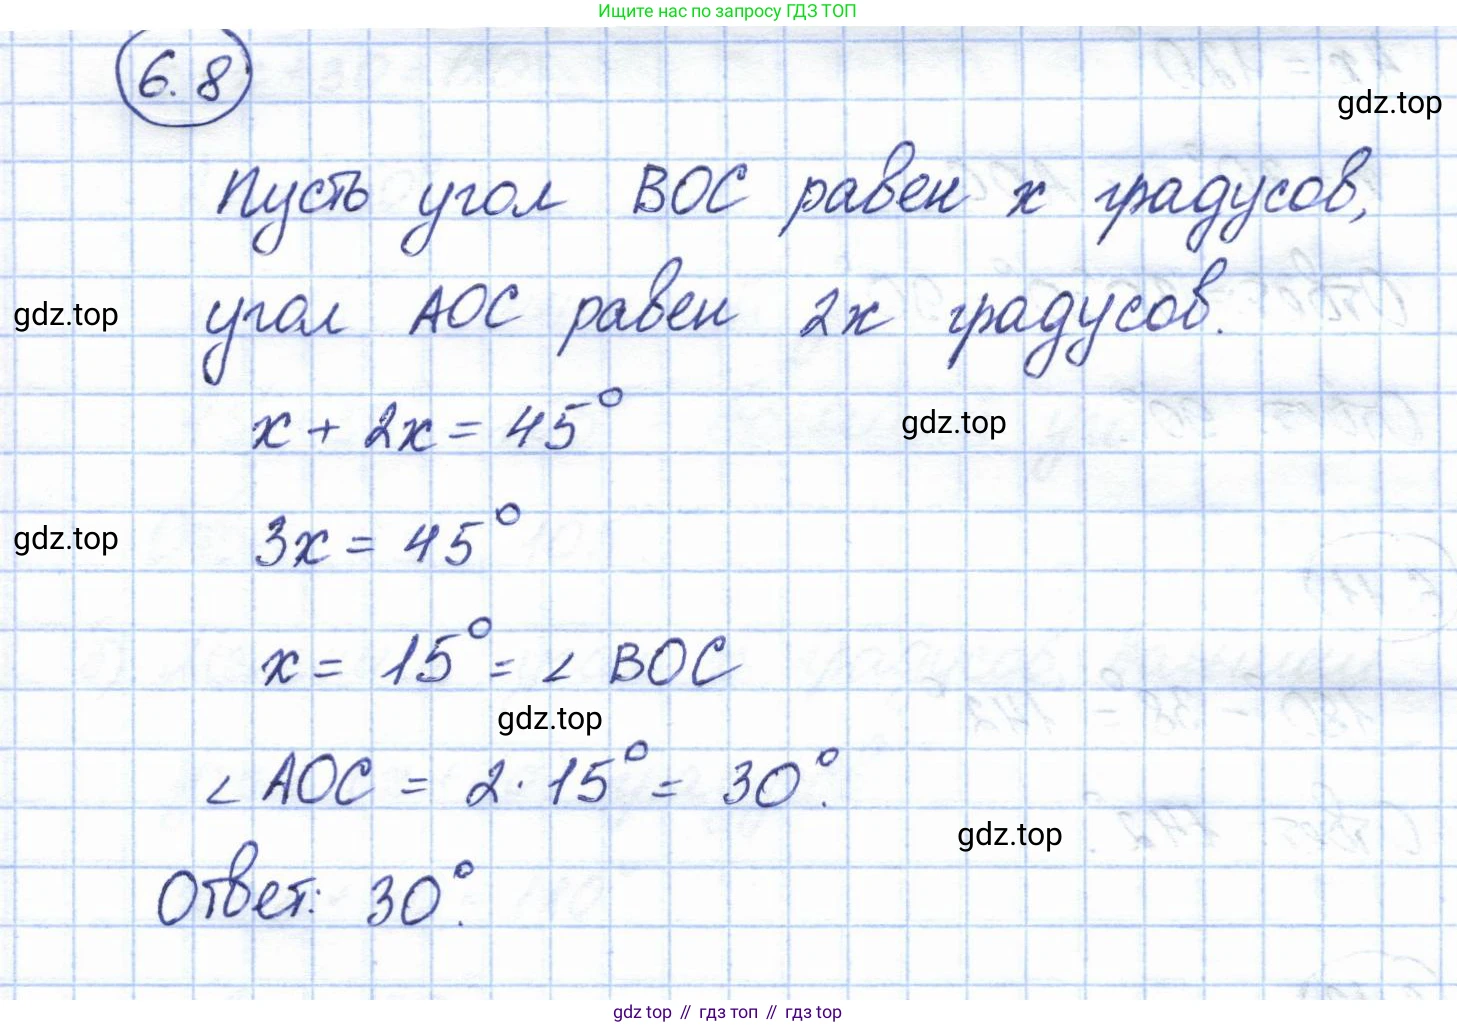 Ищите нас по запросу ГДЗ ТОП
6.8
gdz.top
Пусть угол BOC равен x градусов,
gdz.top
угол AOC равен 2x градусов.
x + 2x = 45°
gdz.top
gdz.top
3x = 45°
x = 15° = ∠ BOC
gdz.top
∠ AOC = 2 · 15° = 30°.
gdz.top
Ответ: 30°.
gdz.top // гдз топ // гдз.top